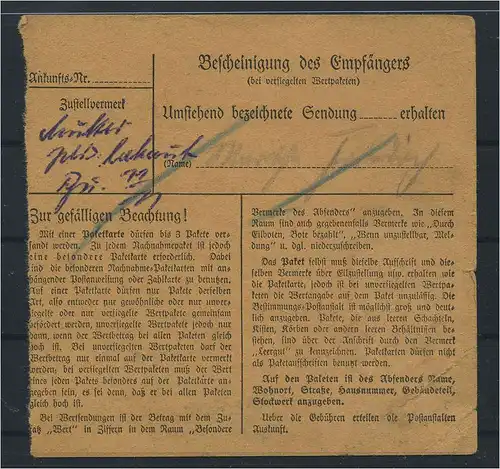 Ankunfts-Nr.
Bescheinigung des Empfängers
(bei versiegelten Wertpaketen)
Zustellvermerk
Umstehend bezeichnete Sendung erhalten
Mutter
(Name)
Zur gefälligen Beachtung!
Mit einer Paketkarte dürfen bis 3 Pakete ver-
sandt werden. Zu jedem Nachnahmepaket ist jedoch
eine besondere Paketkarte erforderlich. Dabei
sind die besonderen Nachnahme-Paketkarten mit an-
hängender Postanweisung oder Zahlkarte zu benutzen.
Auf einer Paketkarte dürfen nur Pakete derselben
Art, also entweder nur gewöhnliche oder nur unver-
siegelte oder nur versiegelte Wertpakete gemeinsam
befördert werden, unversiegelte Wertpakete jedoch nur
dann, wenn der Wertbetrag bei allen Paketen gleich
hoch ist. Bei unversiegelten Wertpaketen darf der
Wertbetrag nur einmal auf der Paketkarte vermerkt
werden; bei versiegelten Wertpaketen muß der Wert
eines jeden Pakets besonders auf der Paketkarte an-
gegeben sein, es sei denn, daß er bei allen Paketen
gleich hoch ist.
Bei Wertsendungen ist der Betrag mit dem Zu-
satz „Wert“ in Ziffern in dem Raum „Besondere
Vermerke des Absenders“ anzugeben. In diesem
Raum sind auch gegebenenfalls Vermerke wie „Durch
Eilboten, Bote bezahlt“, „Wenn unzustellbar, Mel-
dung“ u. dgl. niederzuschreiben.
Das Paket selbst muß dieselbe Aufschrift und die-
selben Vermerke über Eilzustellung usw. erhalten wie
die Paketkarte, jedoch ist bei unversiegelten Wertpa-
keten die Wertangabe auf dem Paket unzulässig. Die
Bestimmungs-Postanstalt ist möglichst groß und deut-
lich anzugeben. Pakete, die aus leeren Schachteln,
Kisten, Körben oder anderen leeren Behältnissen be-
stehen, sind über der Anschrift durch den Vermerk
„Leergut“ zu kennzeichnen. Paketkarten dürfen nicht
als Paketaufschriften benutzt werden.
Auf den Paketen ist des Absenders Name,
Wohnort, Straße, Hausnummer, Gebäudeteil,
Stockwerk anzugeben.
Ueber die Gebühren erteilen die Postanstalten
Auskunft.